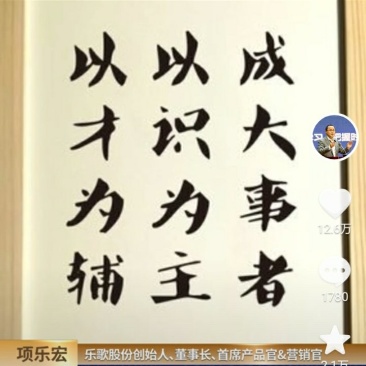 成大事者
以识为主
以才为辅
12.6万
1780
2.1万
项乐宏
乐歌股份创始人、董事长、首席产品官&营销官